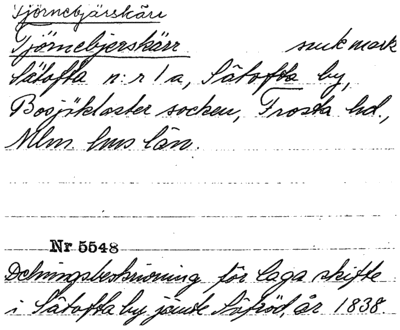 Tjörnebjärskärr
Tjörnebjerskärr sumk mark
Sätofta n:r 1a, Sätofta by,
Bosjökloster socken, Frosta hd.,
Mlm hus län.
Nr 5548
Delningsbeskrivning för laga skifte
i Sätofta by jämte Säfröd, år 1838.